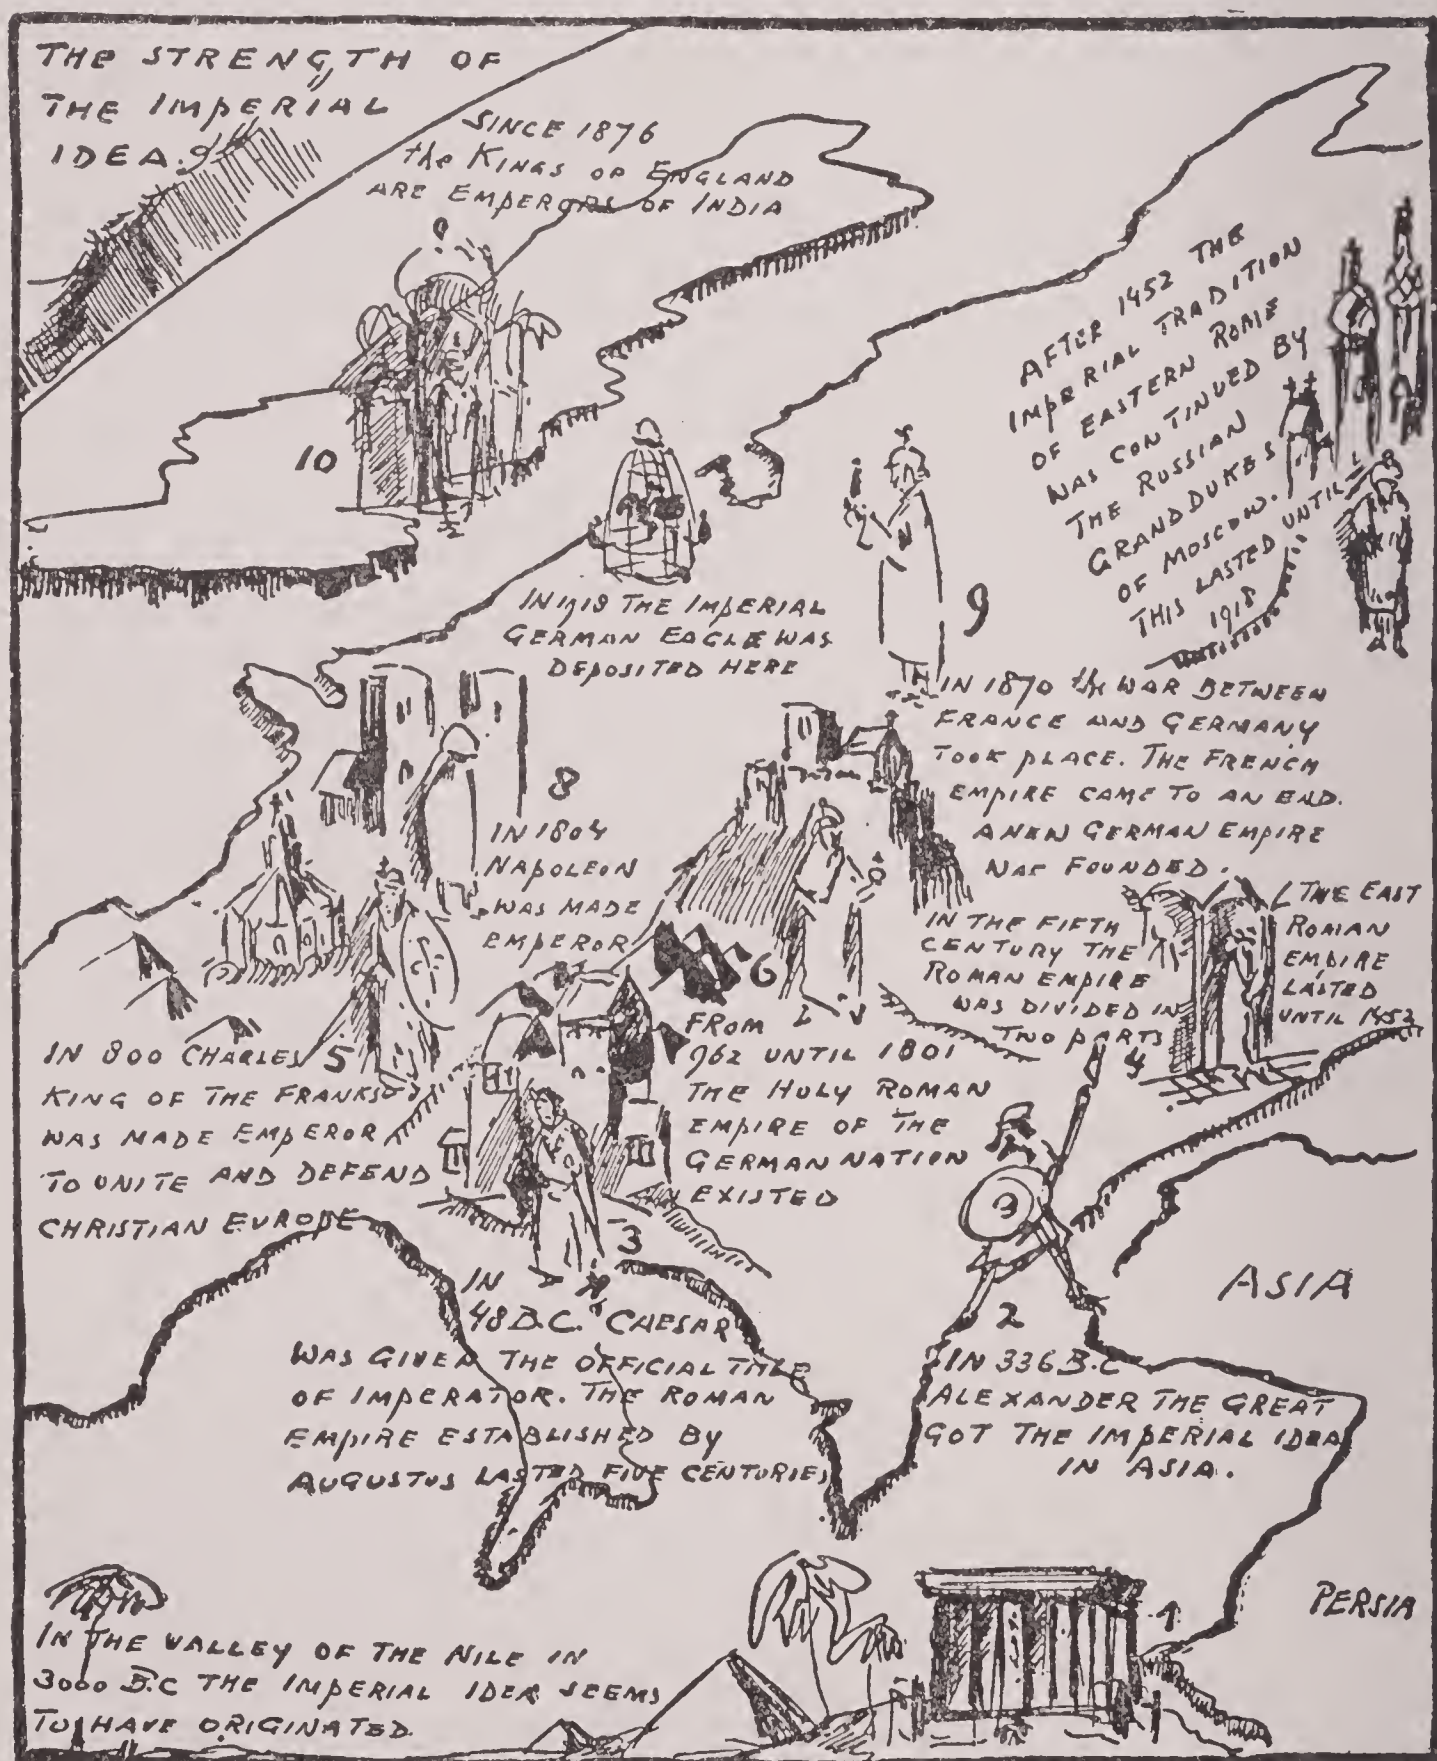 THE STRENGTH OF
THE IMPERIAL
IDEA.
SINCE 1876
the KINGS OF ENGLAND
ARE EMPERORS OF INDIA
10
AFTER 1452 THE
IMPERIAL TRADITION
OF EASTERN ROME
WAS CONTINUED BY
THE RUSSIAN
GRANDDUKES
OF MOSCOW.
THIS LASTED UNTIL
1918
IN 1918 THE IMPERIAL
GERMAN EAGLE WAS
DEPOSITED HERE
9
IN 1870 the WAR BETWEEN
FRANCE AND GERMANY
TOOK PLACE. THE FRENCH
EMPIRE CAME TO AN END.
A NEW GERMAN EMPIRE
WAS FOUNDED.
8
IN 1804
NAPOLEON
WAS MADE
EMPEROR
IN THE FIFTH
CENTURY THE
ROMAN EMPIRE
WAS DIVIDED IN
TWO PARTS
4
THE EAST
ROMAN
EMPIRE
LASTED
UNTIL 1452
5
IN 800 CHARLES
KING OF THE FRANKS
WAS MADE EMPEROR
TO UNITE AND DEFEND
CHRISTIAN EUROPE
6
FROM
962 UNTIL 1801
THE HOLY ROMAN
EMPIRE OF THE
GERMAN NATION
EXISTED
3
IN
48 B.C. CAESAR
WAS GIVEN THE OFFICIAL TITLE
OF IMPERATOR. THE ROMAN
EMPIRE ESTABLISHED BY
AUGUSTUS LASTED FIVE CENTURIES
ASIA
2
IN 336 B.C
ALEXANDER THE GREAT
GOT THE IMPERIAL IDEA
IN ASIA.
PERSIA
1
IN THE VALLEY OF THE NILE IN
3000 B.C THE IMPERIAL IDEA SEEMS
TO HAVE ORIGINATED.